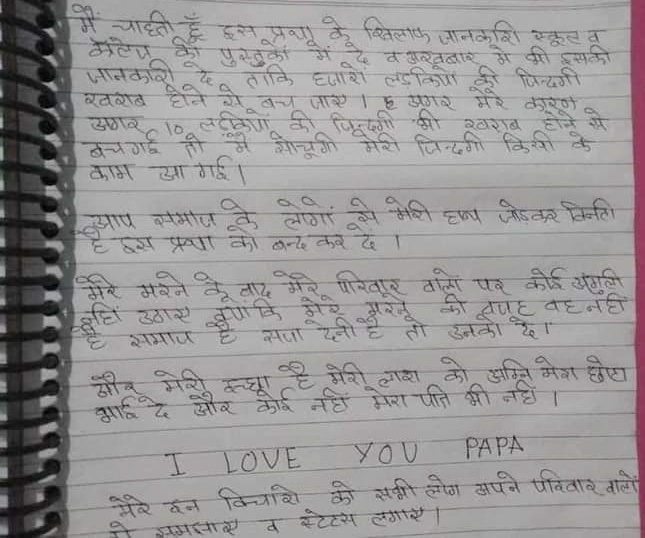 मैं चाहती हूँ इस प्रथा के खिलाफ जानकारी स्कूल व
कॉलेज की पुस्तकों में दे व अखबार में भी इसकी
जानकारी दे ताकि हजारों लड़कियों की जिन्दगी
खराब होने से बच जाए । अगर मेरे कारण
अगर 10 लड़कियों की जिन्दगी भी खराब होने से
बच गई तो मैं सोचूगी मेरी जिन्दगी किसी के
काम आ गई ।
आप समाज के लोगों से मेरी हाथ जोड़कर विनति
है इस प्रथा को बन्द कर दें ।
मेरे मरने के बाद मेरे परिवार वालों पर कोई अंगुली
नहीं उठाए क्योंकि मेरे मरने की वजह वह नहीं
है समाज है सजा देनी है तो उनको दे ।
और मेरी इच्छा है मेरी लाश को अग्नि मेरा छोटा
भाई दे और कोई नहीं मेरा पति भी नहीं ।
I LOVE YOU PAPA
मेरे इन विचारों को सभी लोग अपने परिवार वालों
में समझाए व स्टेटस लगाए ।